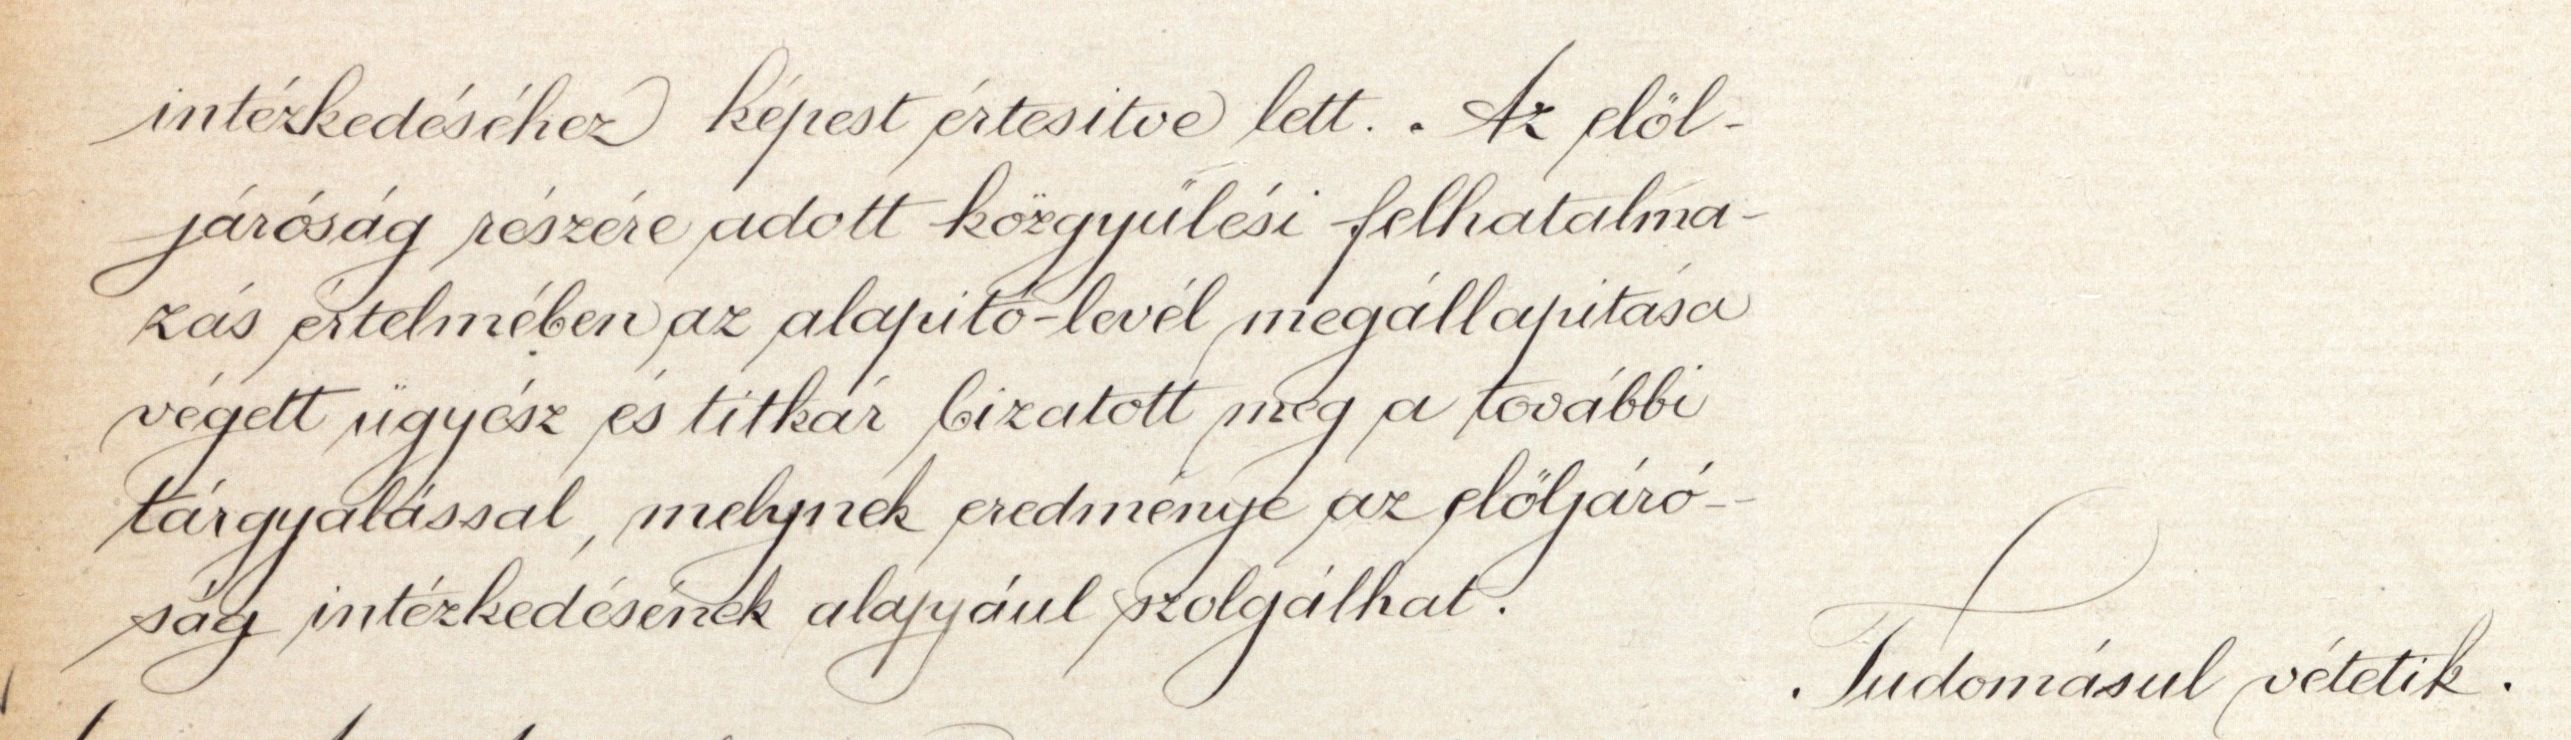 intézkedéséhez képest értesitve lett. Az elöl-
járóság részére adott közgyűlési felhatalma-
zás értelmében az alapitó-levél megállapitása
végett ügyész és titkár bizatott meg a további
tárgyalással, melynek eredménye az elöljáró-
ság intézkedésének alapjául szolgálhat.
Tudomásul vétetik.